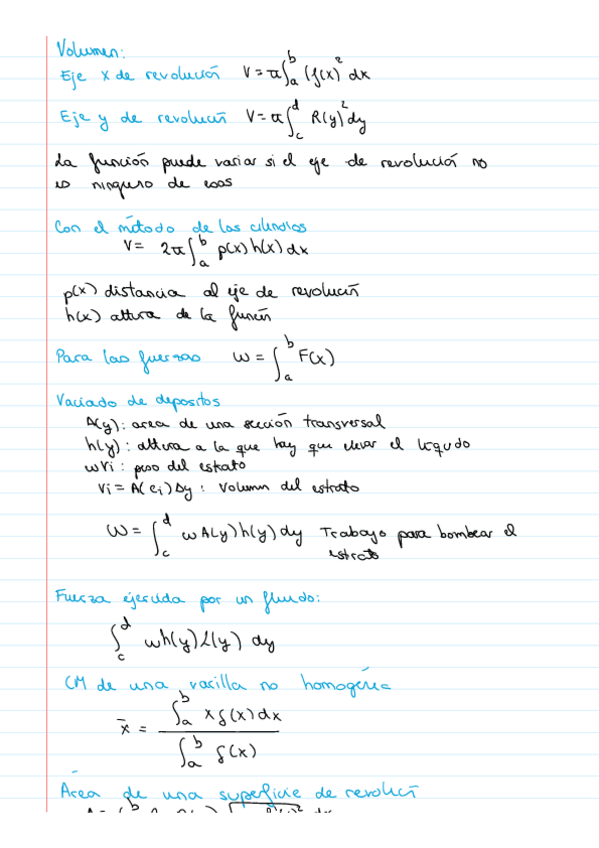 Volumen:
Eje x de revolución V = π∫_a^b (f(x))^2 dx
Eje y de revolución V = π∫_c^d R(y)^2 dy
La función puede variar si el eje de revolución no
es ninguno de esos
Con el método de los cilindros
V = 2π∫_a^b p(x) h(x) dx
p(x) distancia al eje de revolución
h(x) altura de la función
Para las fuerzas W = ∫_a^b F(x)
Vaciado de depositos
A(y): area de una sección transversal
h(y): altura a la que hay que elevar el líquido
wVi: peso del estrato
Vi = A(ci)Δy: Volumen del estrato
W = ∫_c^d w A(y) h(y) dy Trabajo para bombear el
estrato
Fuerza ejercida por un fluido:
∫_c^d wh(y) L(y) dy
CM de una varilla no homogénea
x̄ = ∫_a^b x ρ(x) dx
∫_a^b ρ(x)
Área de una superficie de revolución